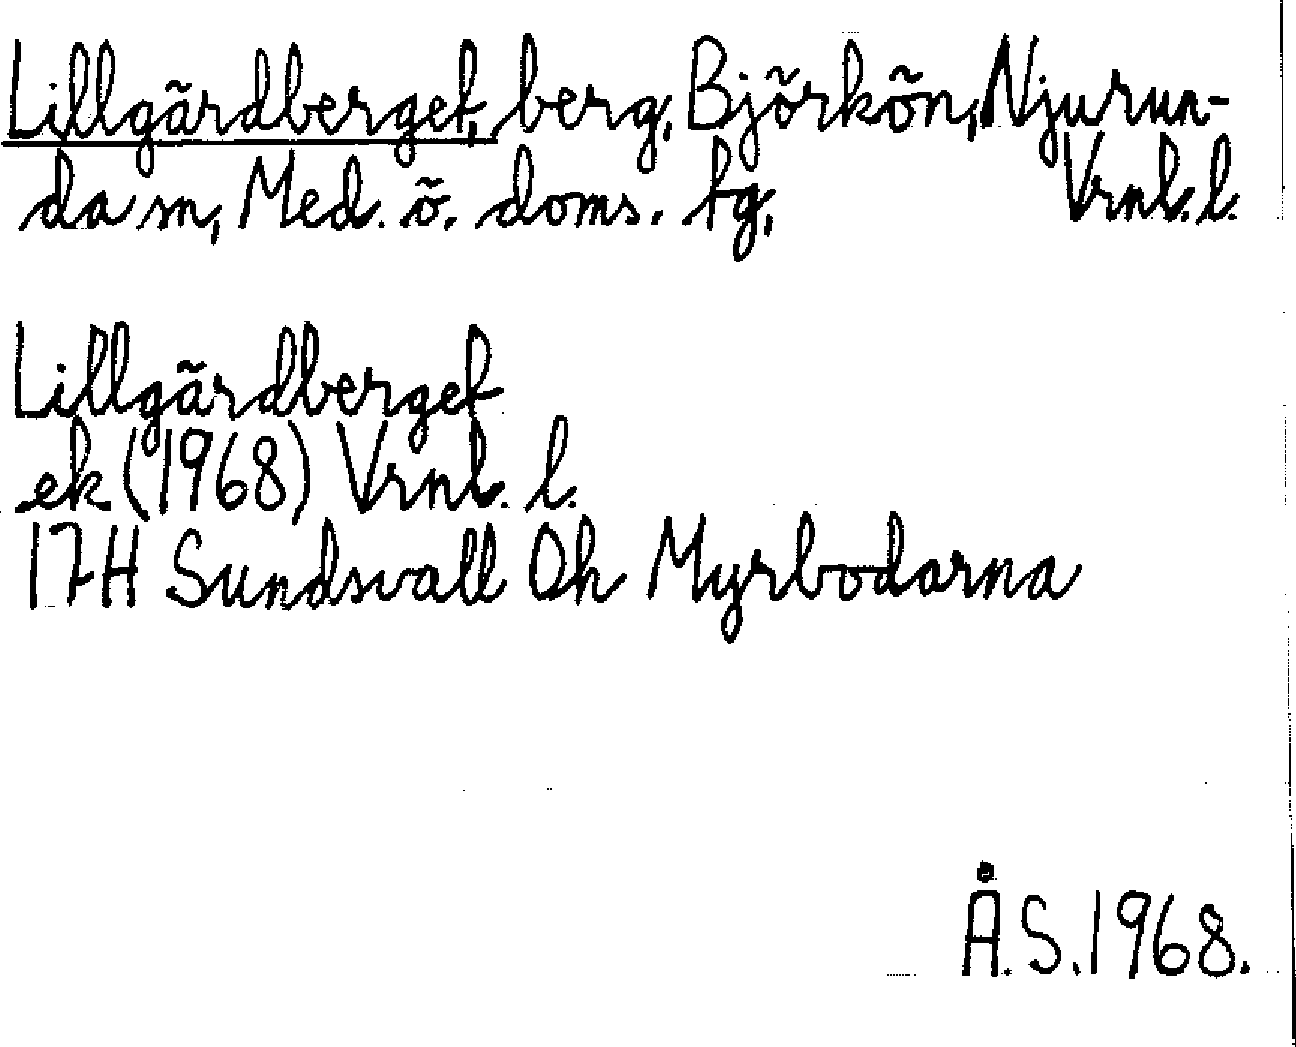 Lillgärdberget, berg, Björkön, Njurun-
da sn, Med. ö. doms. tg, Vrnl. l.
Lillgärdberget
ek (1968) Vrnl. l.
17H Sundsvall 0h Myrbodarna
Å.S. 1968.